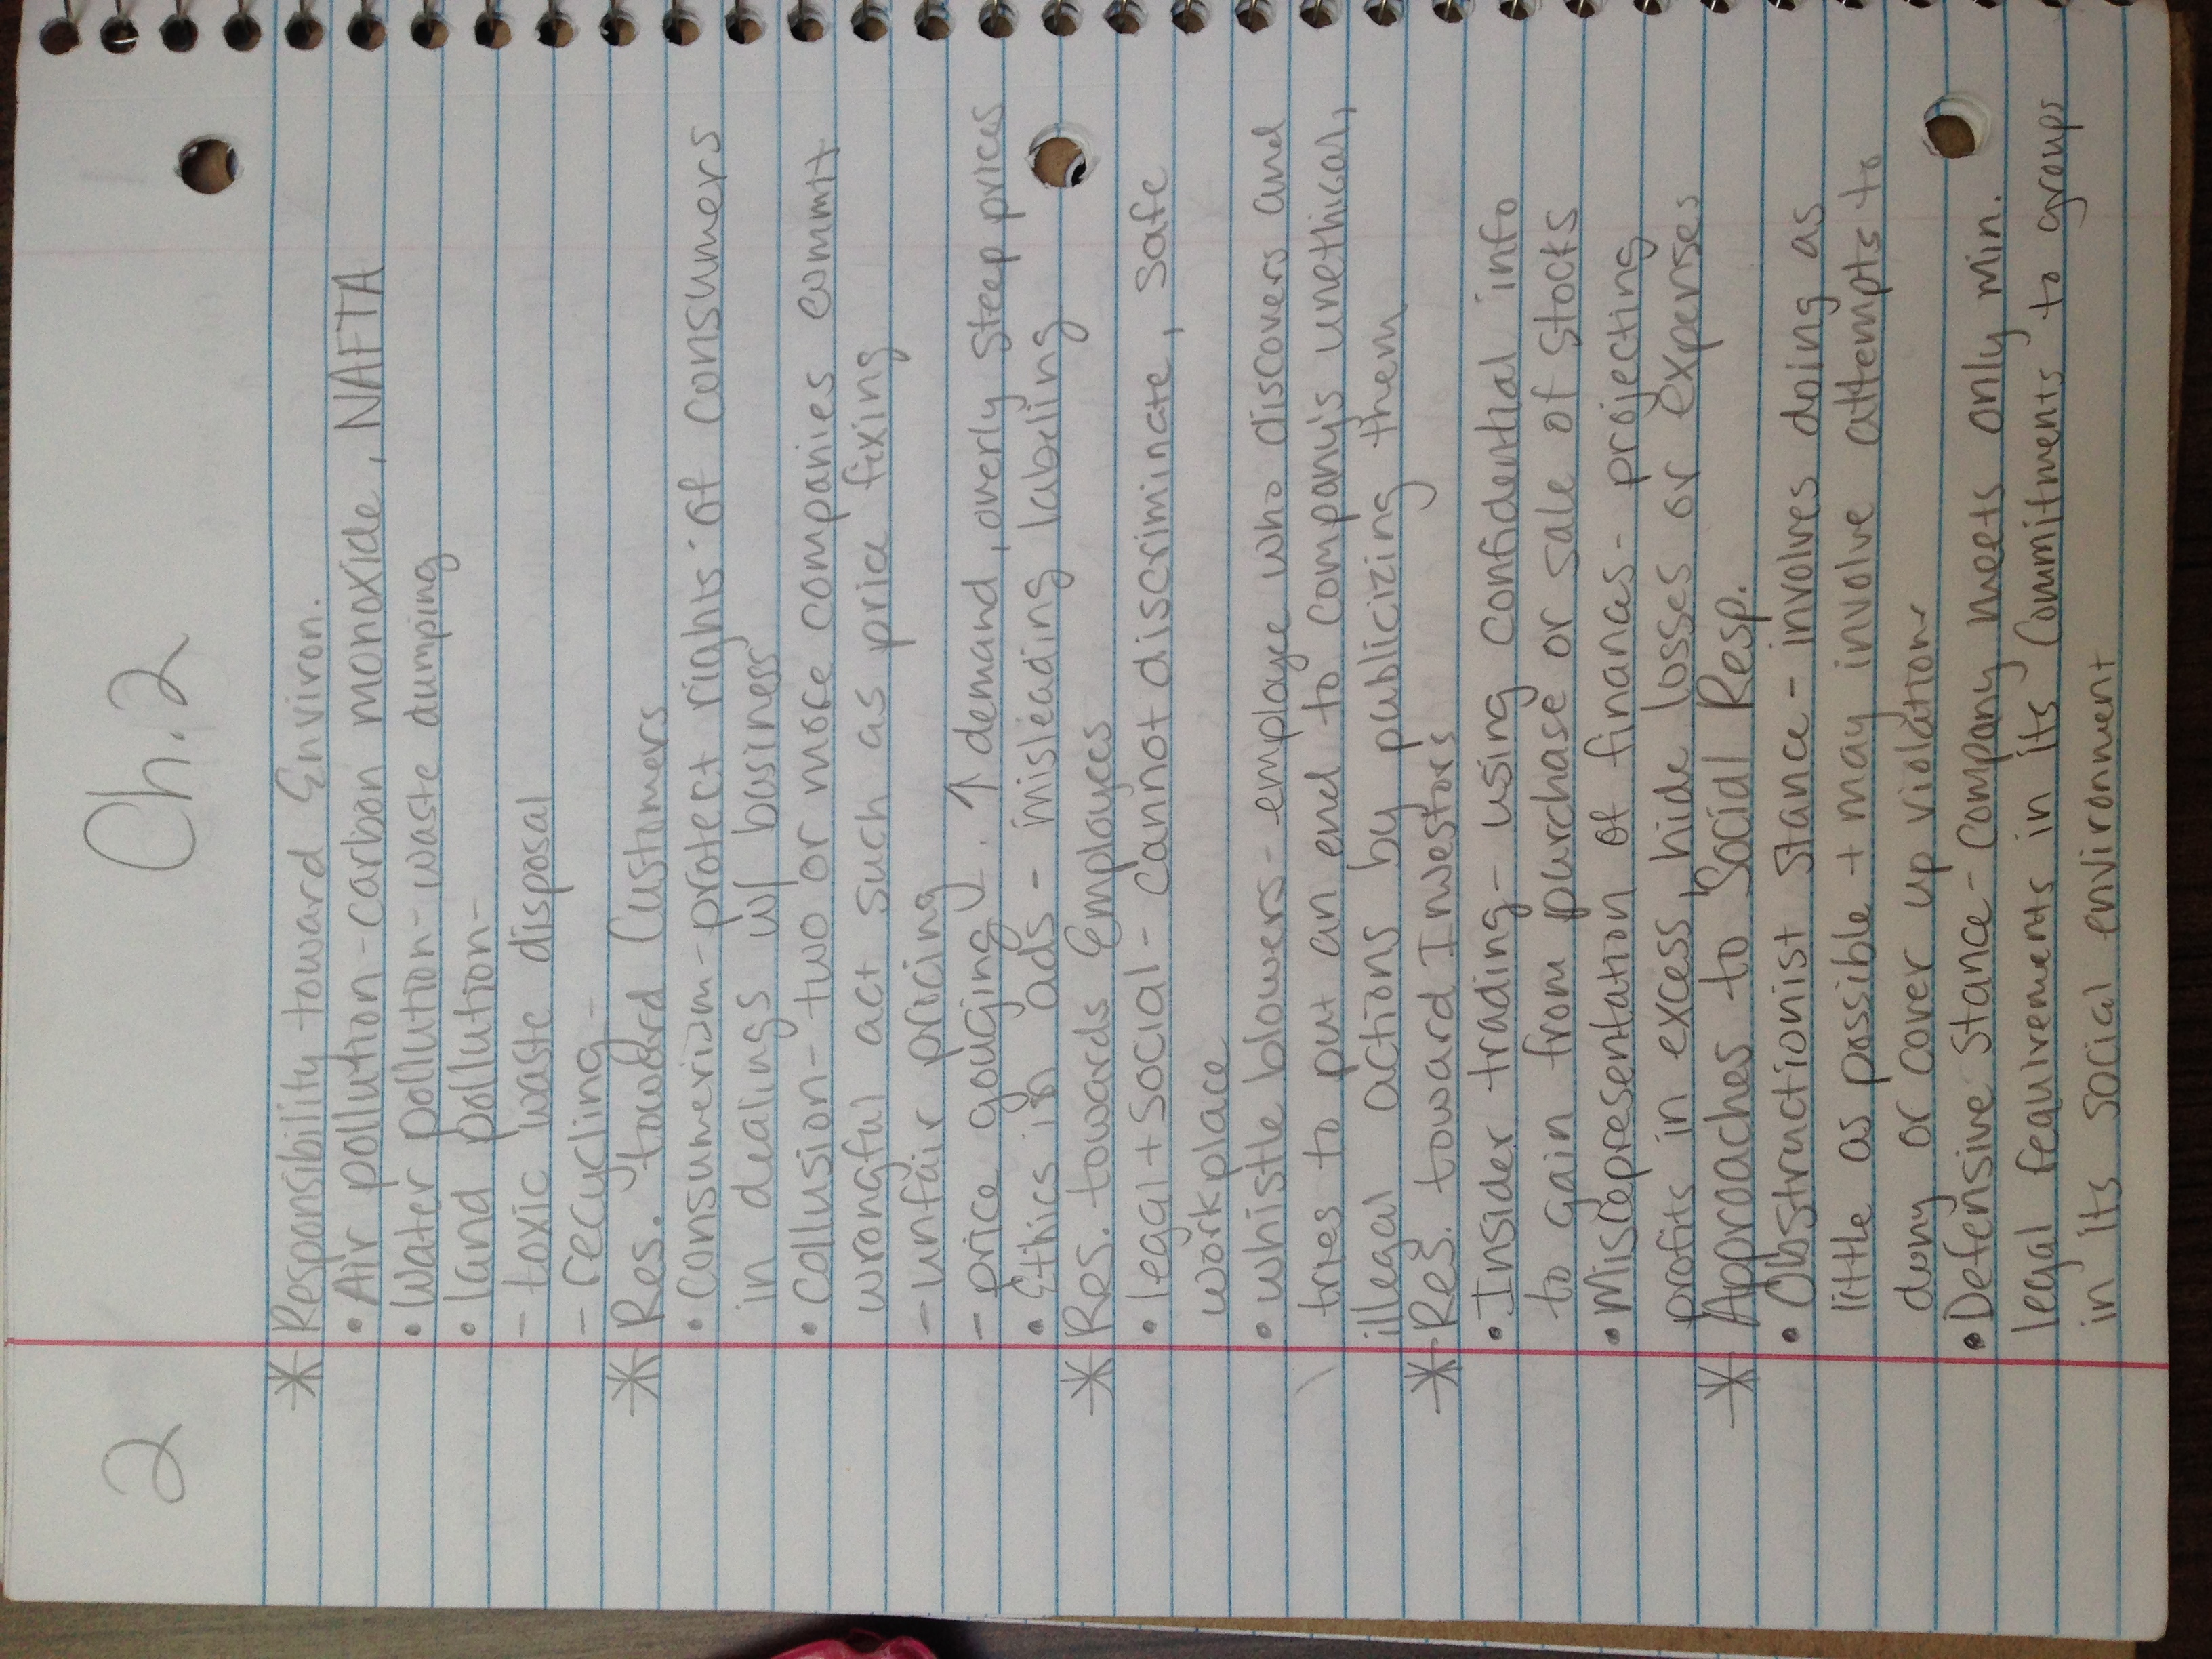 2
Ch. 2
* Responsibility toward Environ.
• Air pollution - carbon monoxide, NAFTA
• Water pollution - waste dumping
• land pollution -
- toxic waste disposal
- recycling -
* Res. toward Customers
• consumerism - protect rights of consumers
in dealings w/ business
• collusion - two or more companies commit
wrongful act such as price fixing
- unfair pricing
- price gouging - ↑ demand, overly steep prices
• Ethics in ads - misleading labeling
* Res. towards Employees
• legal + social - cannot discriminate, safe
workplace
• whistle blowers - employee who discovers and
tries to put an end to company's unethical,
illegal actions by publicizing them
* Res. toward Investors
• Insider trading - using confidential info
to gain from purchase or sale of stocks
• Misrepresentation of finances - projecting
profits in excess, hide losses or expenses
* Approaches to Social Resp.
• Obstructionist Stance - involves doing as
little as possible + may involve attempts to
deny or cover up violations
• Defensive Stance - company meets only min.
legal requirements in its commitments to groups
in its social environment